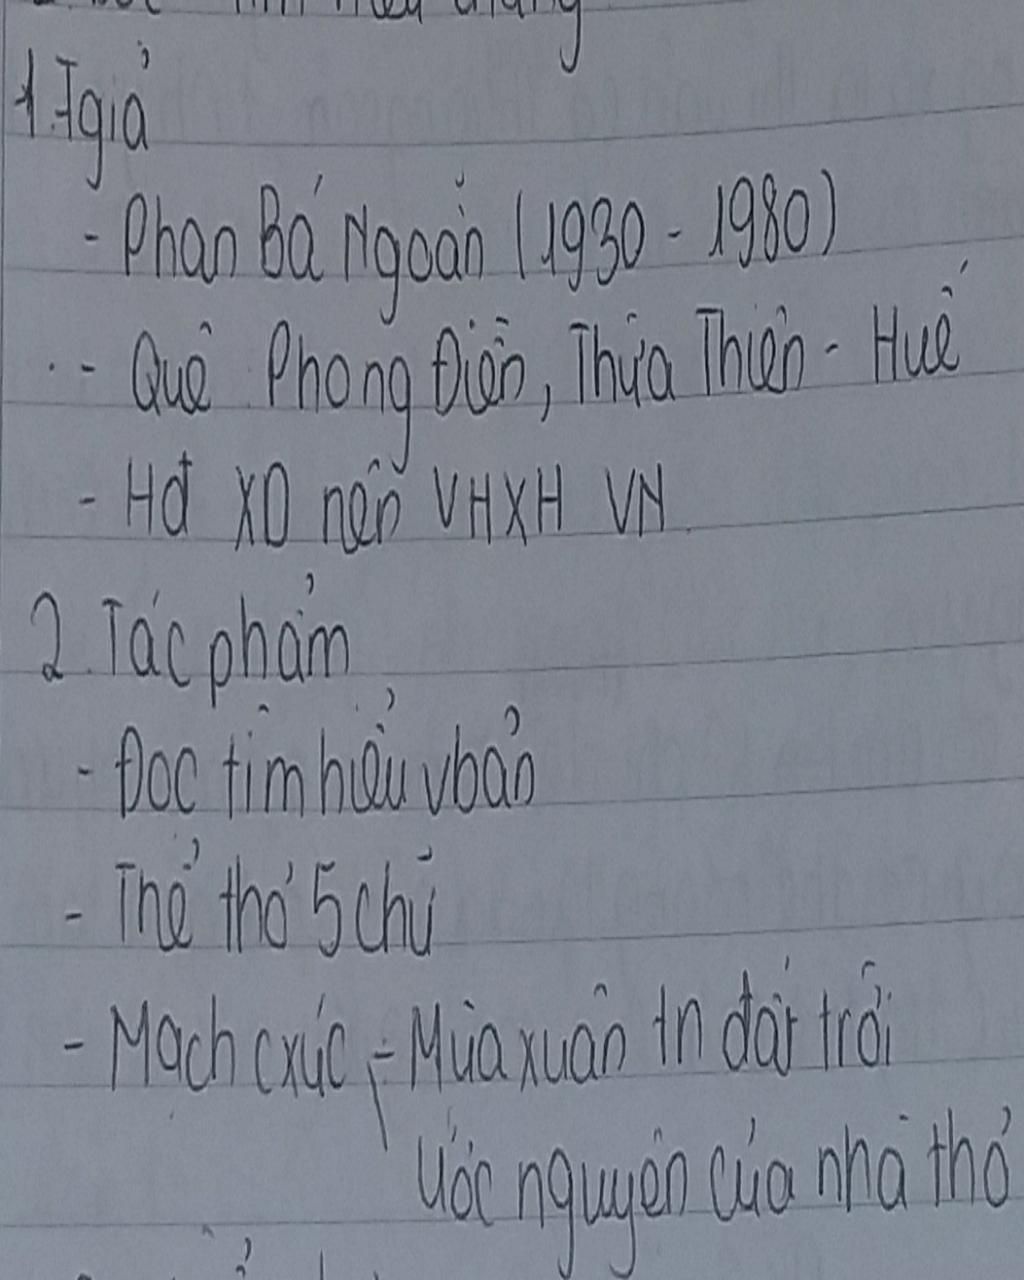 tìm hiểu chung
1. Tgiả
- Phan Bá Ngoãn (1930 - 1980)
- Quê Phong Điền, Thừa Thiên - Huế
- Hđ XD nền VHXH VN
2. Tác phẩm
- Đọc tìm hiểu vbản
- Thể thơ 5 chữ
- Mạch cxúc - Mùa xuân tn đất trời
Ước nguyện của nhà thơ